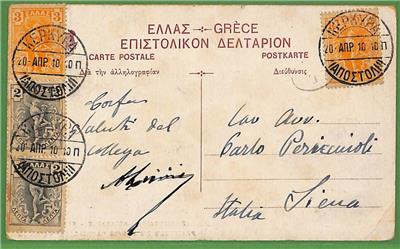 ΕΛΛΑΣ — GRÈCE
ΕΠΙΣΤΟΛΙΚΟΝ ΔΕΛΤΑΡΙΟΝ
CARTE POSTALE
POSTKARTE
Διὰ τὴν ἀλληλογραφίαν
Διεύθυνσις
3 ΕΛΛΑΣ 3
ΚΕΡΚΥΡΑ
20-ΑΠΡ. 10 10 Π
(ΑΠΟΣΤΟΛΗ)
2
ΚΕΡΚΥΡΑ
20-ΑΠΡ. 10 10 Π
(ΑΠΟΣΤΟΛΗ)
ΚΕΡΚΥΡΑ
20-ΑΠΡ. 10 10 Π
(ΑΠΟΣΤΟΛΗ)
Corfu
Saluti del
collega
Avv.
Carlo
Siena
Italia